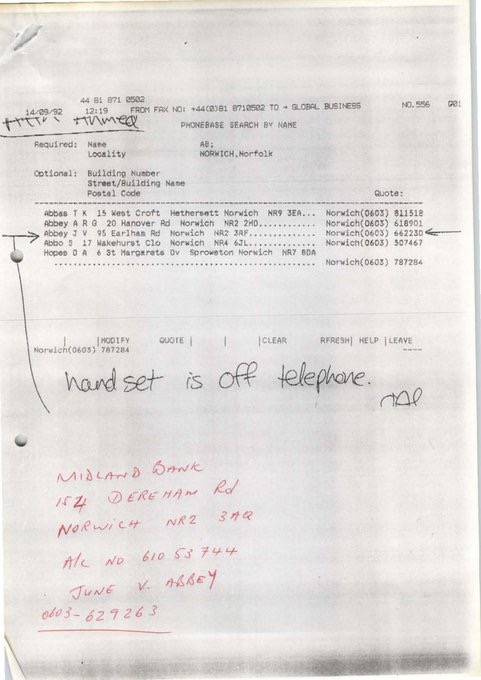 44 81 871 0502
14/09/92 12:19 FROM FAX NO: +44(0)81 8710502 TO → GLOBAL BUSINESS NO.556 001
Attn: Ahmed
PHONEBASE SEARCH BY NAME
Required: Name AB;
Locality NORWICH,Norfolk
Optional: Building Number
Street/Building Name
Postal Code Quote:
Abbas T K 15 West Croft Hethersett Norwich NR9 3EA... Norwich(0603) 811518
Abbey A R G 20 Hanover Rd Norwich NR2 2HD............ Norwich(0603) 618901
Abbey J V 95 Earlham Rd Norwich NR2 3RF.............. Norwich(0603) 662230
Abbo S 17 Wakehurst Clo Norwich NR4 6JL.............. Norwich(0603) 507467
Hopes D A 6 St Margarets Dv Sprowston Norwich NR7 8DA
..................................................... Norwich(0603) 787284
| |MODIFY QUOTE | | |CLEAR RFRESH| HELP |LEAVE
Norwich(0603) 787284 ----
handset is off telephone.
MIDLAND BANK
154 DEREHAM Rd
NORWICH NR2 3AQ
A/C NO 61053744
JUNE V. ABBEY
0603-629263